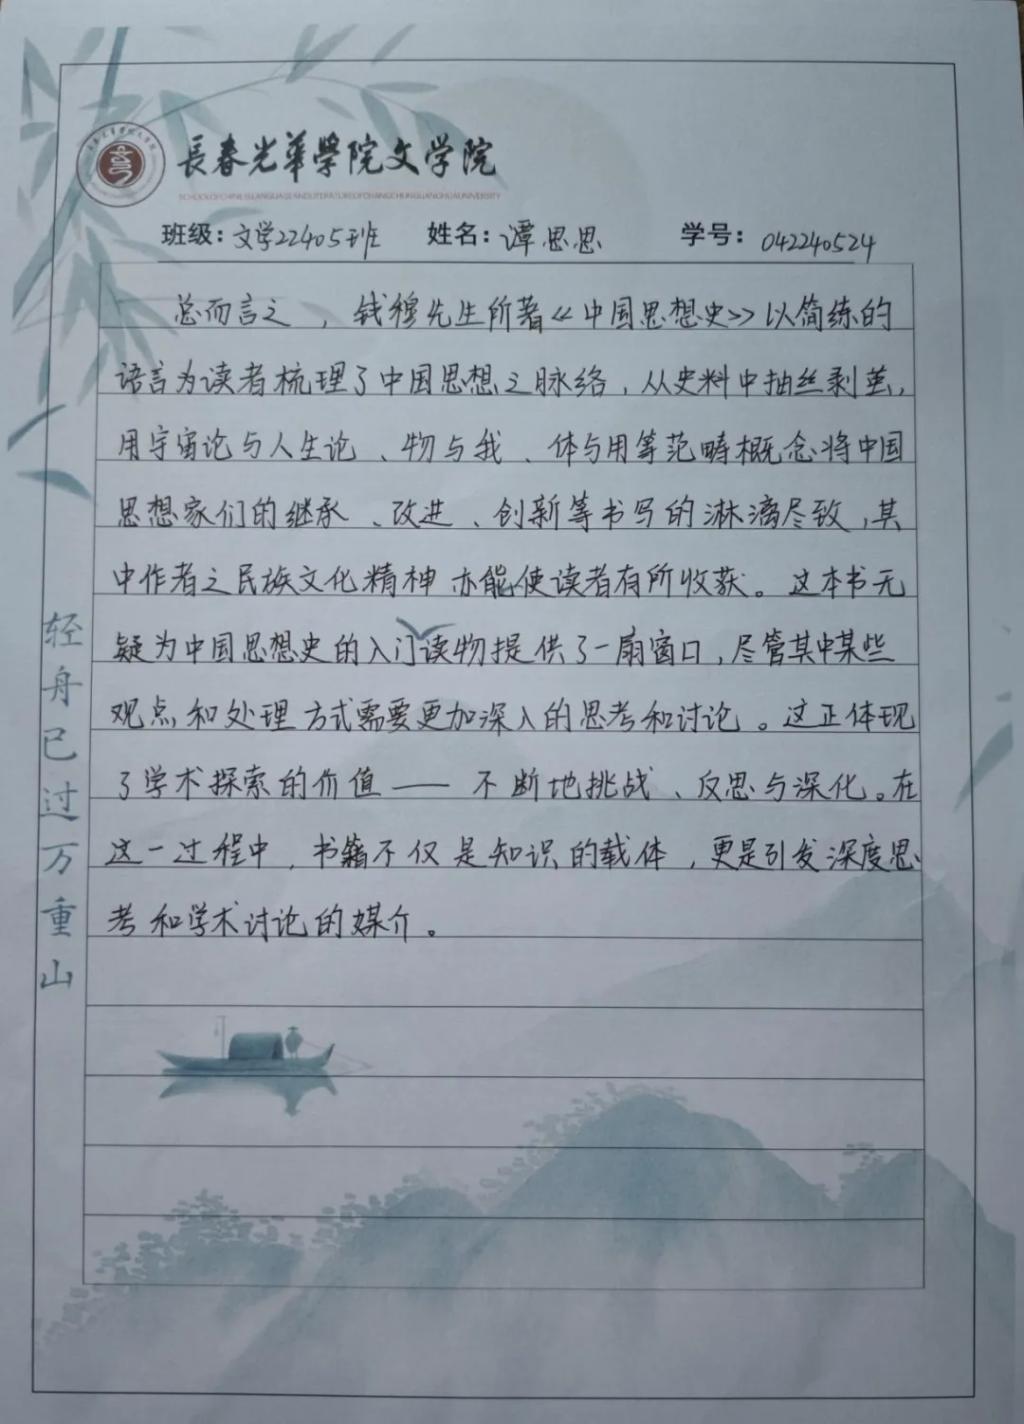 長春光華學院文学院
SCHOOL OF CHINESE LANGUAGE AND LITERATURE OF CHANGCHUN GUANGHUA UNIVERSITY
班级：文学22405班 姓名：谭思思 学号：042240524
总而言之，钱穆先生所著《中国思想史》以简练的
语言为读者梳理了中国思想之脉络，从史料中抽丝剥茧，
用宇宙论与人生论、物与我、体与用等范畴概念将中国
思想家们的继承、改进、创新等书写的淋漓尽致，其
中作者之民族文化精神亦能使读者有所收获。这本书无
疑为中国思想史的入门读物提供了一扇窗口，尽管其中某些
观点和处理方式需要更加深入的思考和讨论。这正体现
了学术探索的价值——不断地挑战、反思与深化。在
这一过程中，书籍不仅是知识的载体，更是引发深度思
考和学术讨论的媒介。
轻舟已过万重山